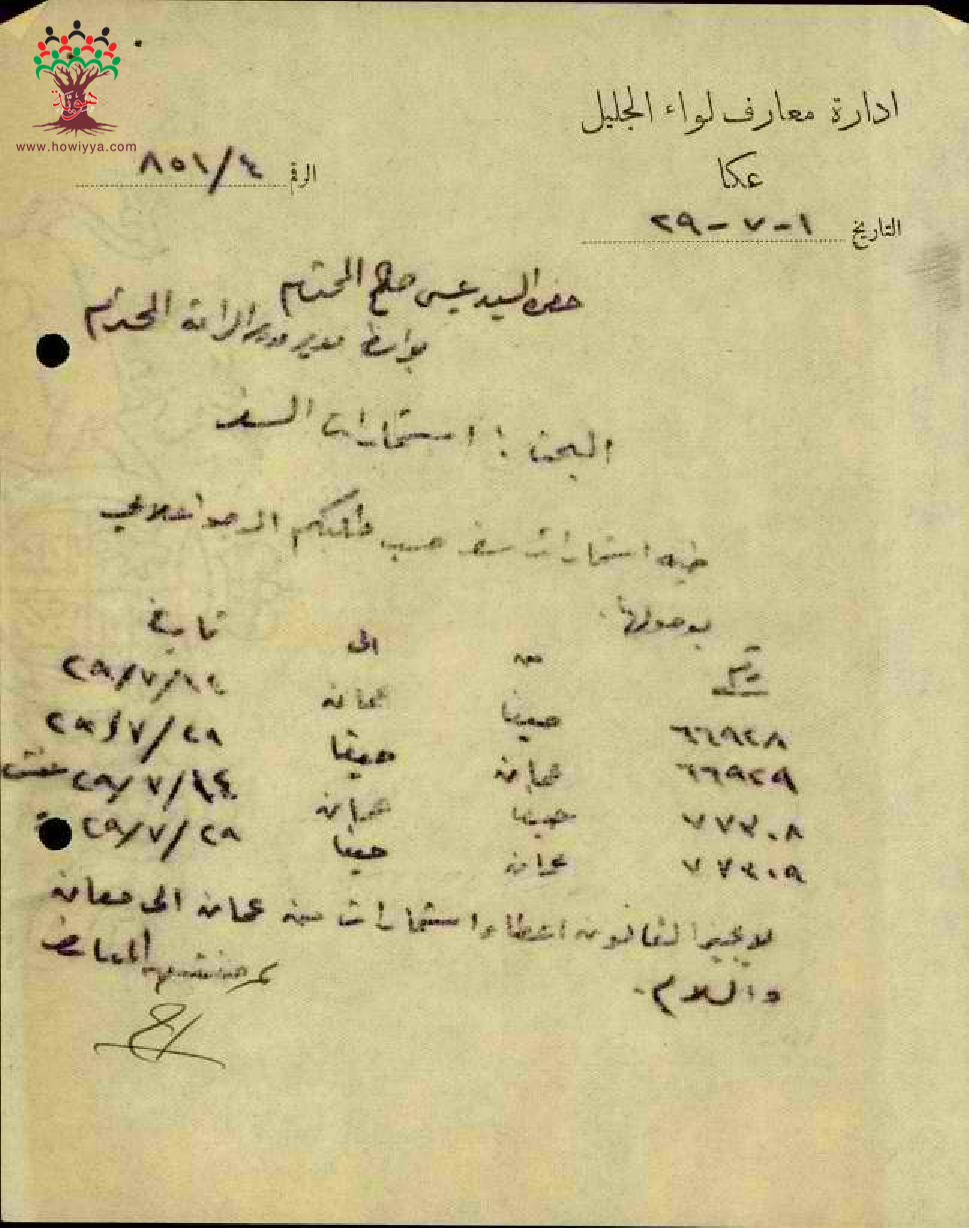 هوية
www.howiyya.com
ادارة معارف لواء الجليل
عكا
الرقم ٨٥١/٤
التاريخ ١-٧-٢٩
حضرة السيد عيسى صالح المحترم
بواسطة مدير مدرسة الرامة المحترم
البحث : استمارات السفر
طيه استمارات سفر حسب طلبكم ارجو اعلامي
بوصولها.
رقم من الى تاريخ
٦٦٩٢٨ حيفا عمان ١٤/٧/٢٩
٦٦٩٢٩ عمان حيفا ٢٨/٧/٢٩
٧٧٣٠٨ حيفا عمان ١٤/٧/٢٩ عفش
٧٧٣٠٩ عمان حيفا ٢٨/٧/٢٩
لا يجيز القانون اعطاء استمارات من عمان الى معان
والسلام.
مفتش المعارف